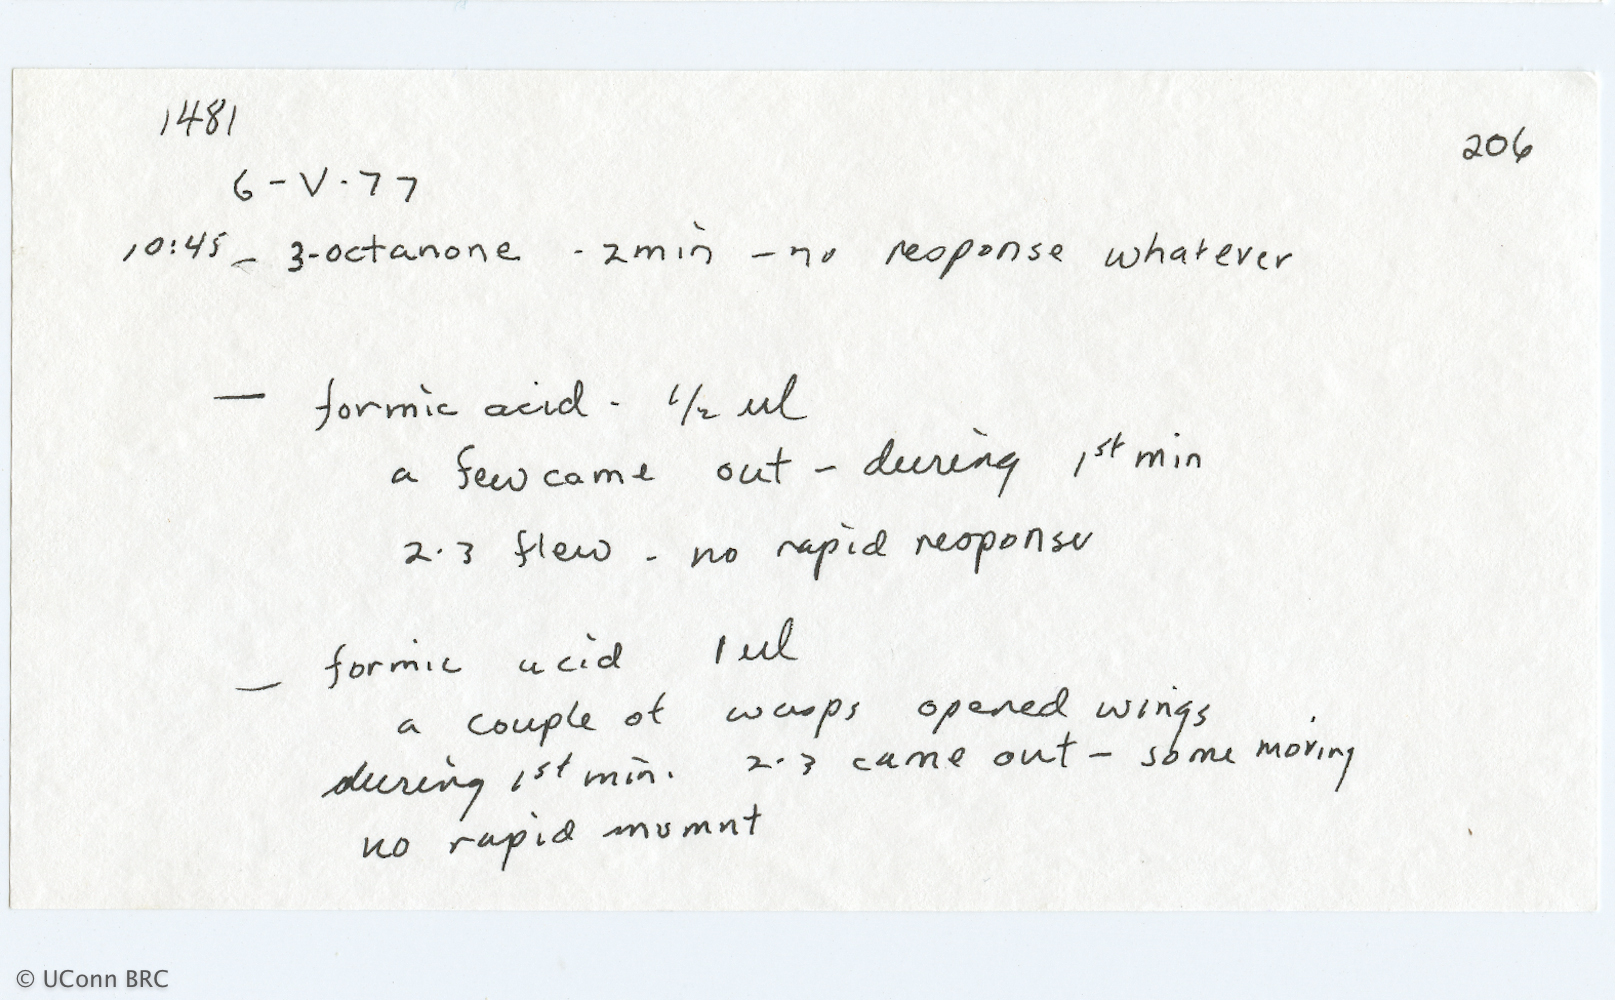 1481
206
6-V-77
10:45 - 3-octanone - 2 min - no response whatever
- formic acid - 1/2 ul
a few came out - during 1st min
2-3 flew - no rapid response
- formic acid 1 ul
a couple of wasps opened wings
during 1st min. 2-3 came out - some moving
no rapid mvmnt
© UConn BRC